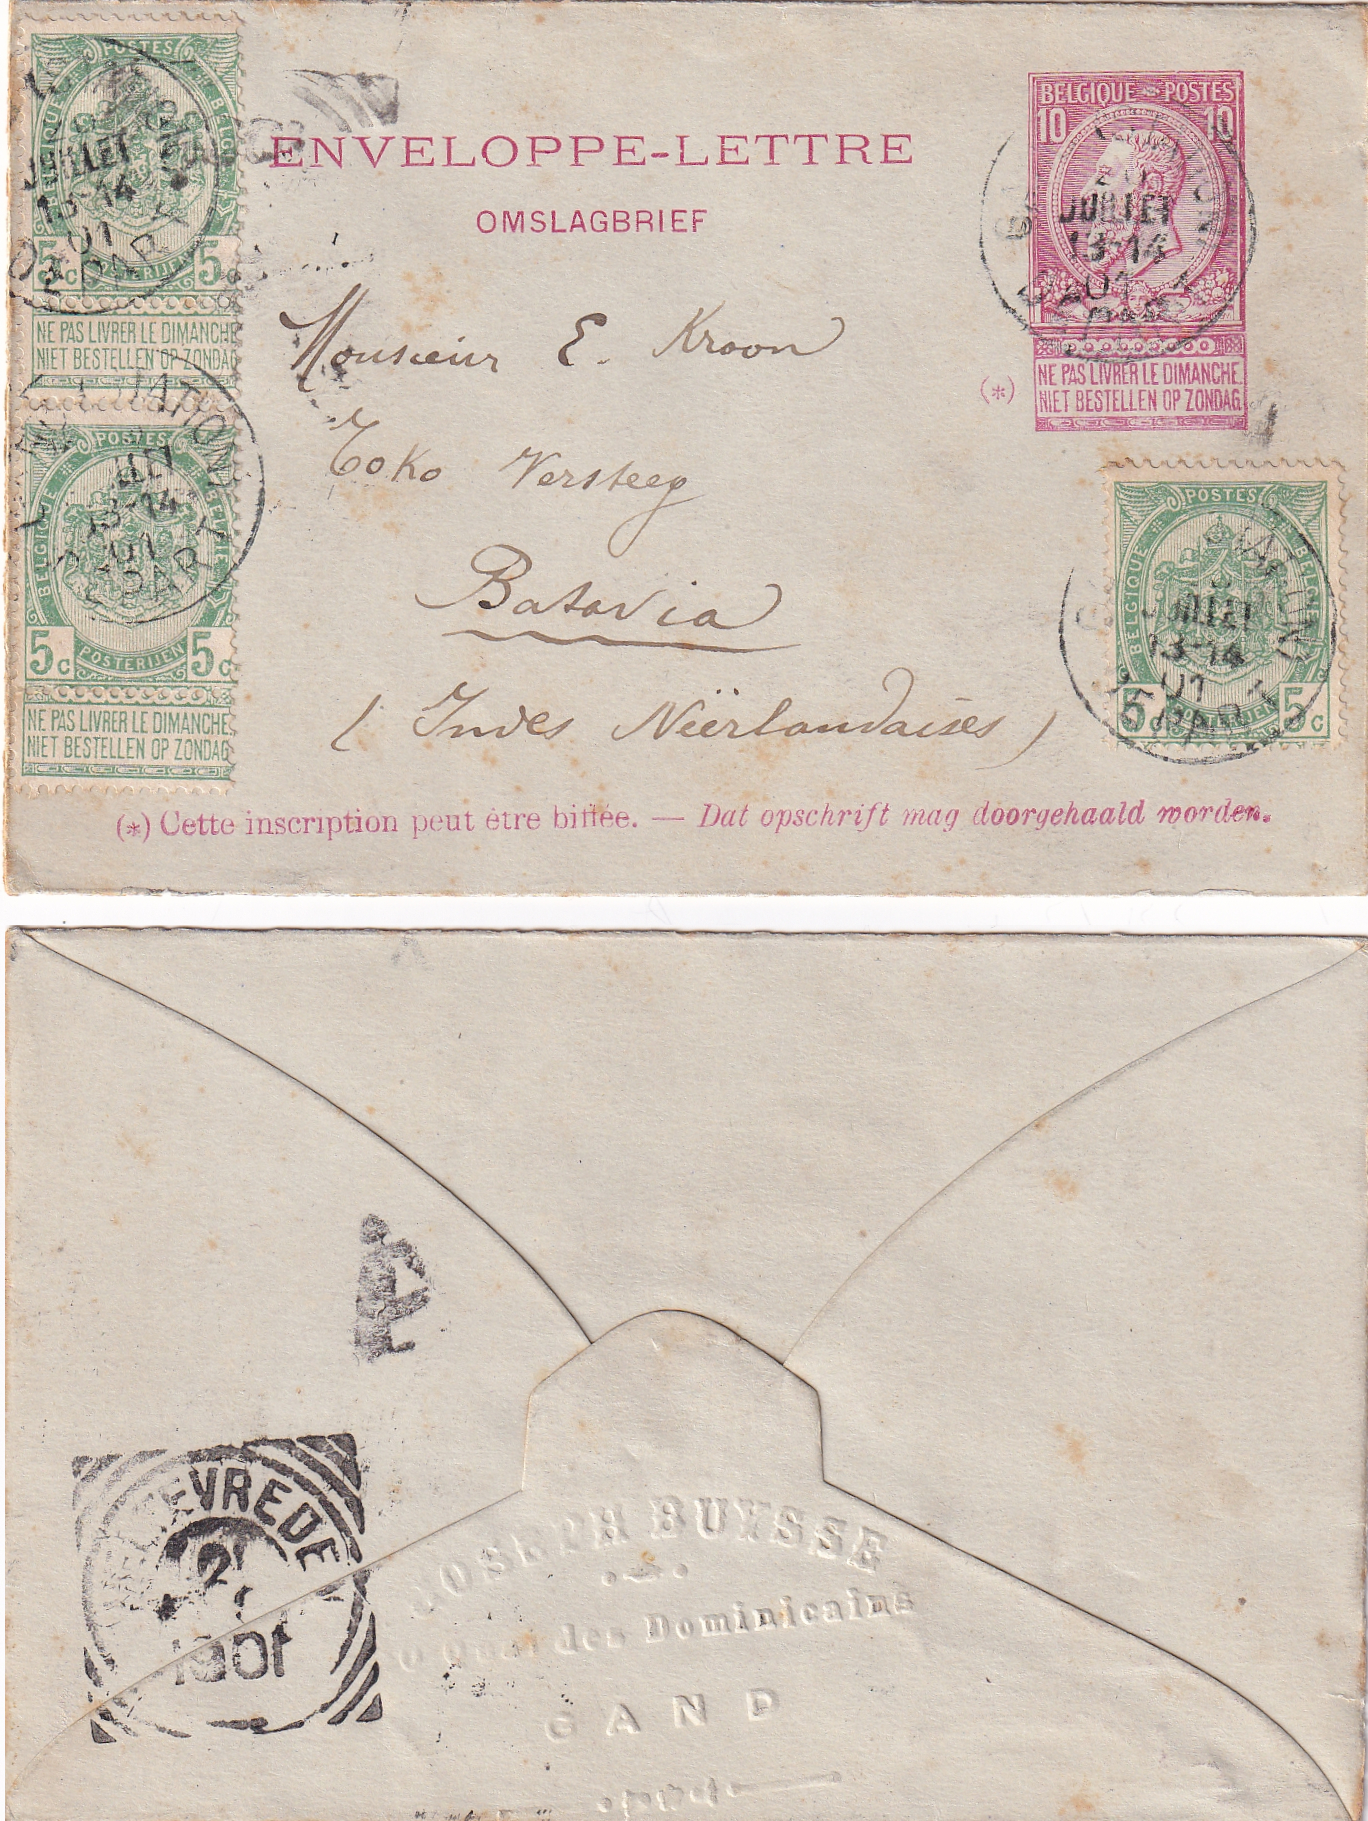 POSTES
BELGIQUE BELGIE
JUILLET
13-14
01
5c 5c
POSTERIJEN
NE PAS LIVRER LE DIMANCHE
NIET BESTELLEN OP ZONDAG
STATION
13-14
01
DEPART
POSTES
BELGIQUE BELGIE
5c POSTERIJEN 5c
NE PAS LIVRER LE DIMANCHE
NIET BESTELLEN OP ZONDAG
ENVELOPPE-LETTRE
OMSLAGBRIEF
BELGIQUE POSTES
10 10
JUILLET
13-14
01
DEPART
(*)
NE PAS LIVRER LE DIMANCHE.
NIET BESTELLEN OP ZONDAG
Monsieur E. Kroon
Toko Versteeg
Batavia
(Indes Neërlandaises)
POSTES
BELGIQUE BELGIE
STATION
JUILLET
13-14
01
DEPART
5c 5c
(*) Cette inscription peut être biffée. — Dat opschrift mag doorgehaald worden.
WELTEVREDEN
1901
JOSEPH BUYSSE
Quai des Dominicains
GAND